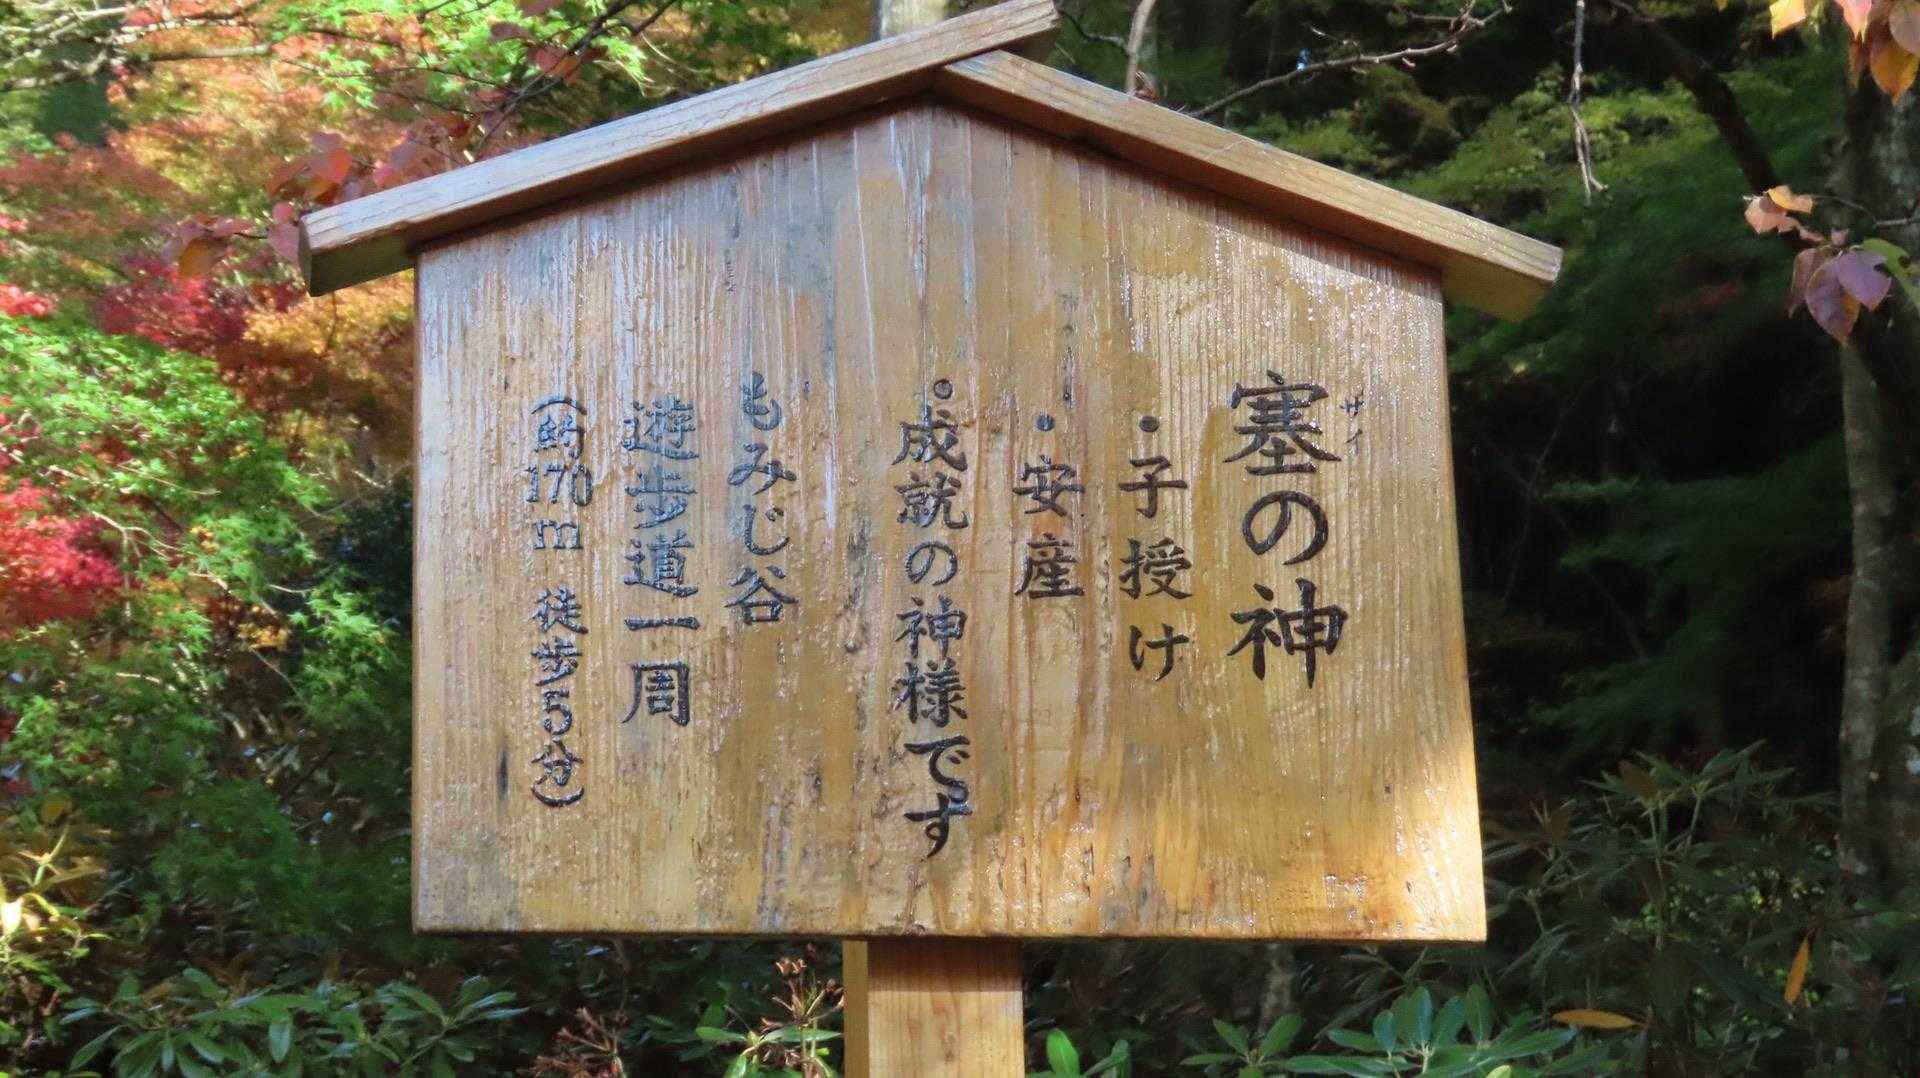 塞の神
ザイ
・子授け
・安産
・成就の神様です
もみじ谷
遊歩道一周
(約170m 徒歩5分)